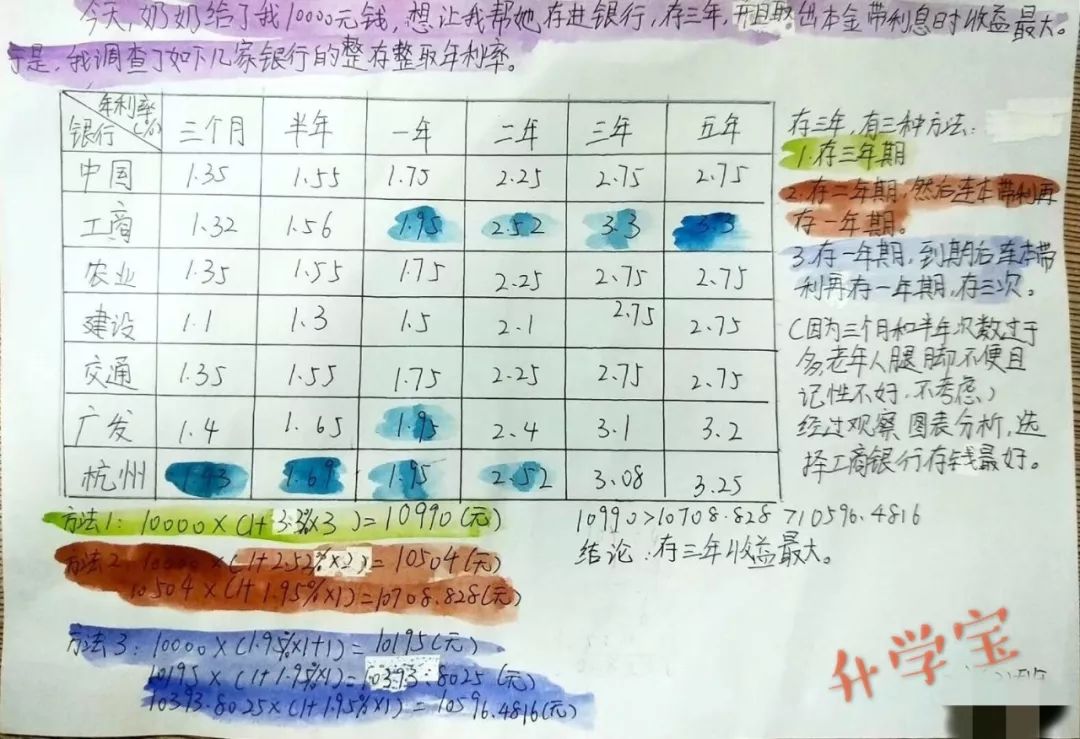 今天,奶奶给了我10000元钱,想让我帮她存进银行,存三年,并且取出本金带利息时收益最大。
于是,我调查了如下几家银行的整存整取年利率。
年利率(%) 银行 三个月 半年 一年 二年 三年 五年
中国 1.35 1.55 1.75 2.25 2.75 2.75
工商 1.32 1.56 1.95 2.52 3.3 3.3
农业 1.35 1.55 1.75 2.25 2.75 2.75
建设 1.1 1.3 1.5 2.1 2.75 2.75
交通 1.35 1.55 1.75 2.25 2.75 2.75
广发 1.4 1.65 1.95 2.4 3.1 3.2
杭州 1.43 1.69 1.95 2.52 3.08 3.25
存三年,有三种方法:
1.存三年期
2.存二年期,然后连本带利再
存一年期。
3.存一年期,到期后连本带
利再存一年期,存三次。
(因为三个月和半年次数过于
多,老年人腿脚不便且
记性不好,不考虑)
经过观察图表分析,选
择工商银行存钱最好。
方法1:10000×(1+3.3%×3)=10990(元)
方法2:10000×(1+2.52%×2)=10504(元)
10504×(1+1.95%×1)=10708.828(元)
方法3:10000×(1.95%×1+1)=10195(元)
10195×(1+1.95%×1)=10393.8025(元)
10393.8025×(1+1.95%×1)=10596.4816(元)
10990>10708.828>10596.4816
结论:存三年收益最大。
升学宝